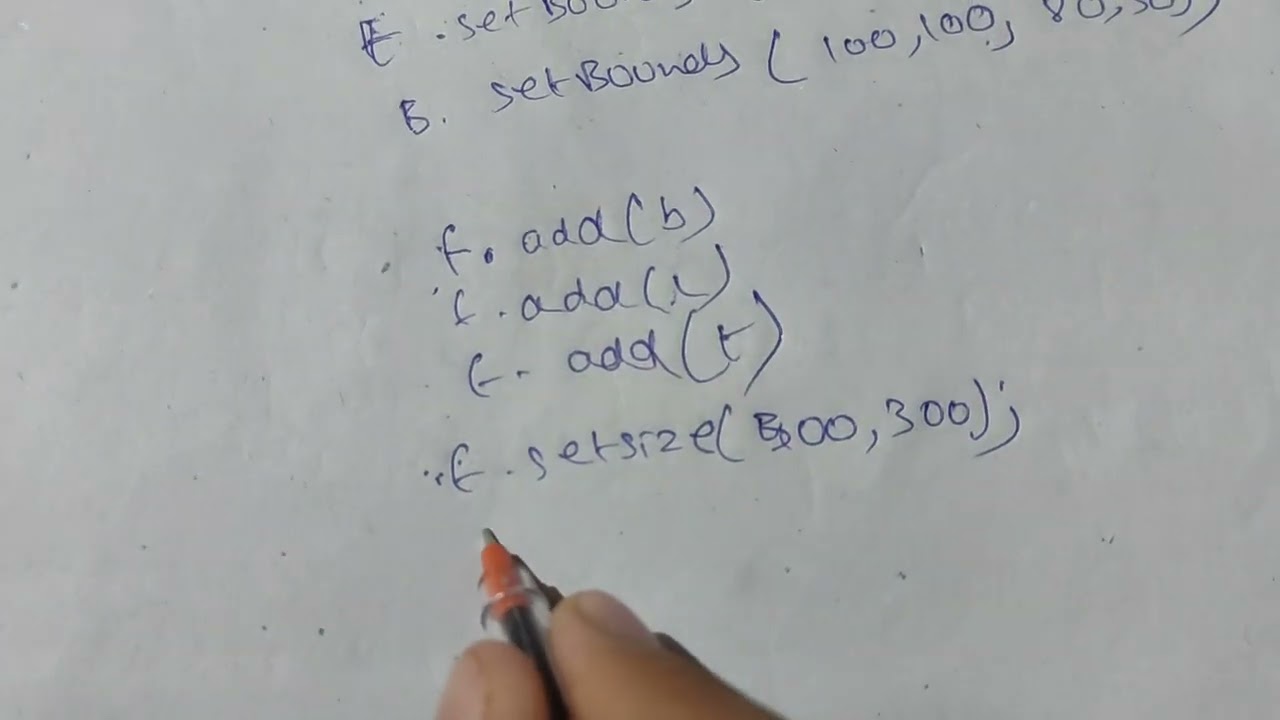 t .setBoun
B. setBounds (100,100, 80,30,)
f. add(b)
f. add(L)
f. add(t)
f. setsize(300,300);